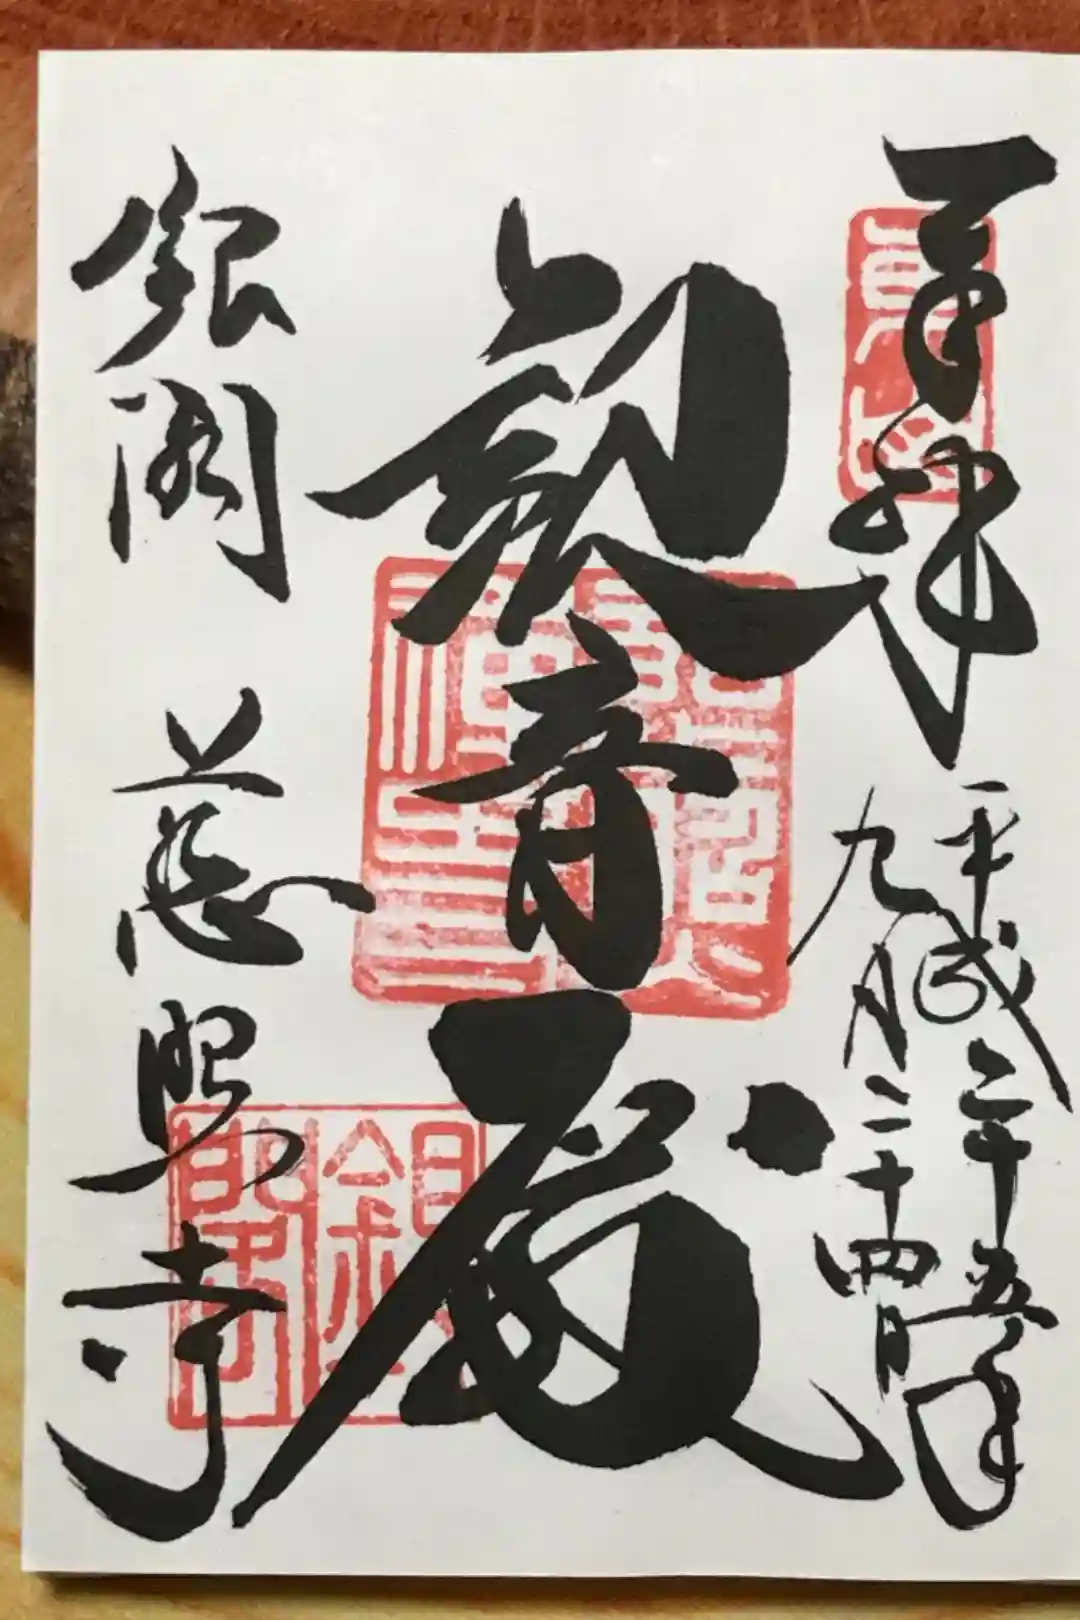 奉拝
平成二十五年
九月二十四日
観音殿
銀閣 慈照寺
東山
銀閣